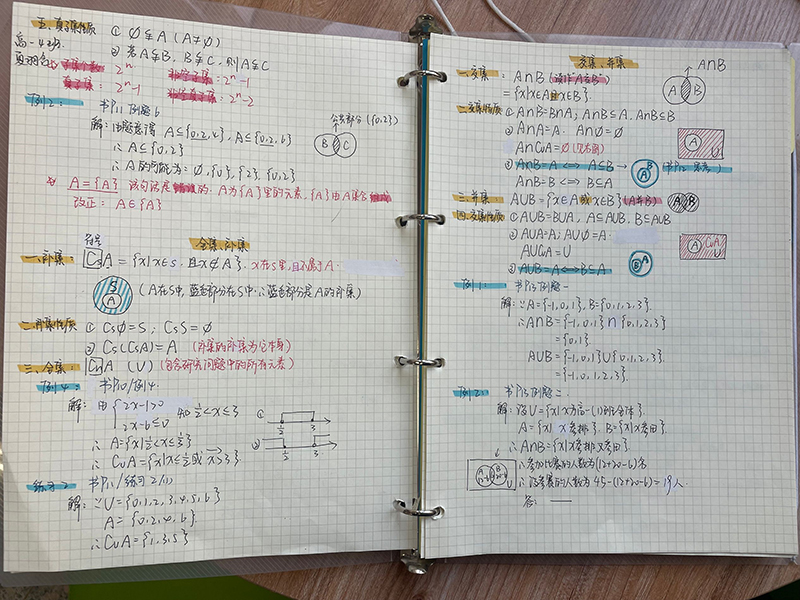 五、真子集性质 ① ∅⫋A (A≠∅)
② 若A⫋B, B⫋C, 则A⫋C
子集个数: 2ⁿ 非空子集: 2ⁿ-1
真子集: 2ⁿ-1 非空真子集: 2ⁿ-2
例2: 书P11 例题6
解: 由题意得 A⊆{0,2,4}, A⊆{0,2,6}
∴ A⊆{0,2}
公共部分 ({0,2})
B C
A={A} 该句话是 的. A为{A}里的元素, {A}由A集合
改正: A∈{A}
全集、补集
符号
一、补集 CsA = {x|x∈S, 且x∉A}. x在S里, 且不属于A.
S A (A在S中, 蓝色部分在S中 ∴蓝色部分是A的补集)
二、补集性质 ① Cs∅=S ; CsS=∅
② Cs(CsA)=A (补集的补集为它本身)
三、全集: CuA (U) (包含研究问题中的所有元素)
例4: 书P10/例4.
解: 由 {2x-1>0
2x-6≤0 知 ½<x≤3
① ½ 3
② ½ 3
∴ A={x|½<x≤3}
∴ CuA={x|x≤½或x>3}
练习2 书P11/练习2/(1)
解: ∵U={0,1,2,3,4,5,6}
A={0,2,4,6}
∴CuA={1,3,5}
交集、并集
一、交集: A∩B (读作"A交B")
={x|x∈A且x∈B}
A∩B
A B
二、交集性质 ① A∩B=B∩A, A∩B⊆A, A∩B⊆B
② A∩A=A. A∩∅=∅
A∩CuA=∅ (见右图)
A U
③ A∩B=A <=> A⊆B → A B
A∩B=B <=> B⊆A
三、并集 A∪B={x|x∈A或x∈B} (A并B) A B
四、并集性质 ① A∪B=B∪A, A⊆A∪B, B⊆A∪B
② A∪A=A; A∪∅=A.
A∪CuA=U
A CuA U
③ A∪B=A<=>B⊆A B A
例1: 书P13例题一
解: ∵A={-1,0,1}, B={0,1,2,3}
∴A∩B={-1,0,1}∩{0,1,2,3}
={0,1}
A∪B={-1,0,1}∪{0,1,2,3}
={-1,0,1,2,3}
例2: 书P13例题二
解: 设U={x|x为高一(1)班全体}
A={x|x参排}. B={x|x参田}
∴A∩B={x|x参排又参田}
∴参加比赛的人数为(12+20-6)名
∴没参赛的人数为45-(12+20-6)=19人
A B U
答: ——